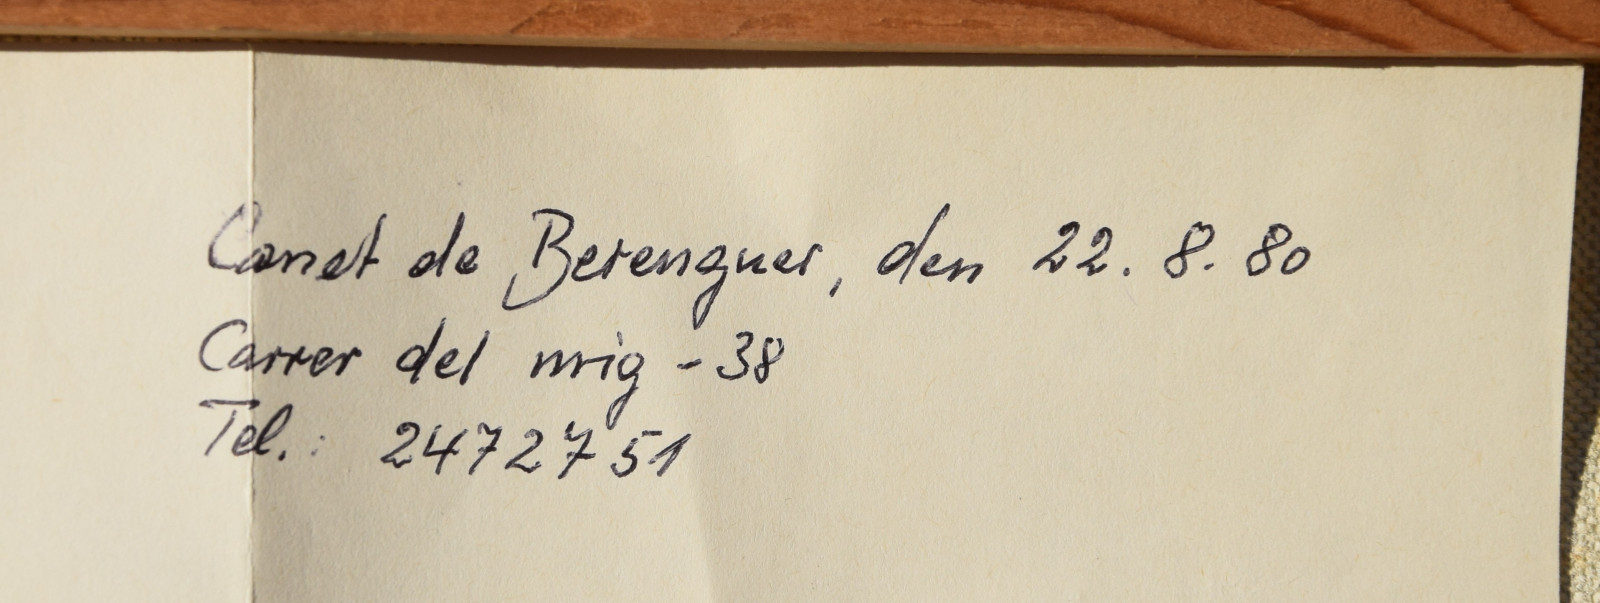 Canet de Berenguer, den 22. 8. 80
Carrer del mig - 38
Tel.: 2472751